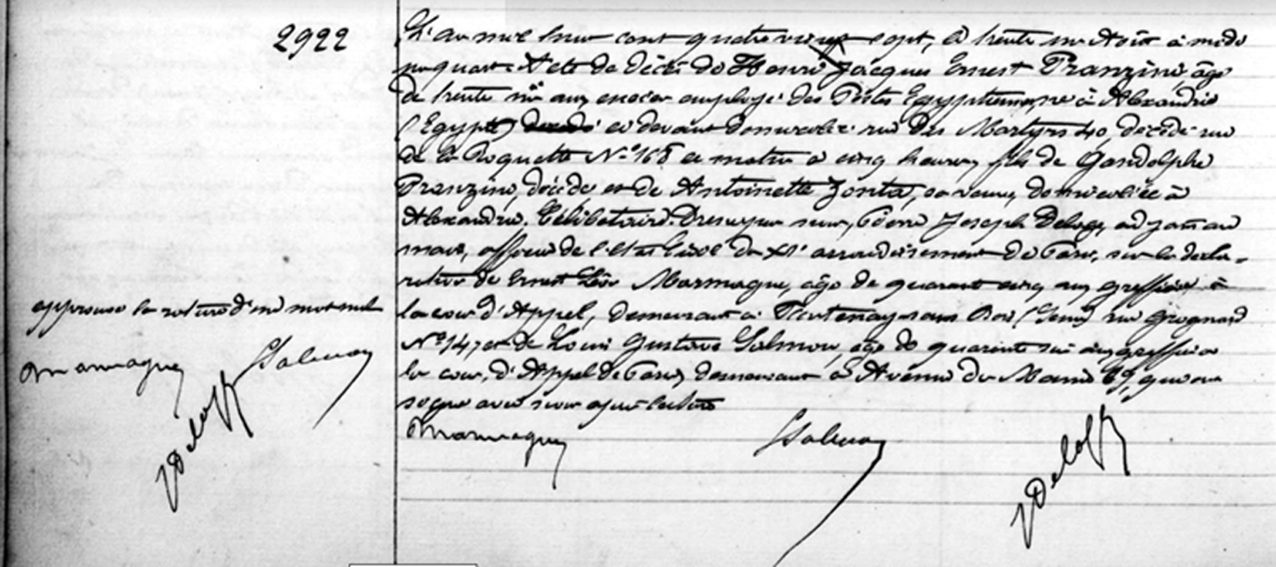 2922
L'an mil huit cent quatre vingt sept, le trente un Août à midi
un quart. Acte de décès de Henri Jacques Ernest Pranzini âgé
de trente un ans ancien employé des Postes Egyptiennes, né à Alexandrie
(Egypte) décédé ci devant domicilié rue des Martyrs 40 décédé rue
de la Roquette N° 168 ce matin à cinq heures, fils de Gandolphe
Pranzini, décédé et de Antoinette Zonta, sa veuve, domiciliée à
Alexandrie. Célibataire. Dressé par nous, Joseph adjoint au
maire, officier de l'état civil du XIe arrondissement de Paris, sur la décla-
ration de Ernest Léon Marmagne, âgé de quarante cinq ans greffier à
la cour d'Appel, demeurant à Fontenay sous Bois (Seine) rue
N° 147 et de Louis Gustave Salmon, âgé de quarante six ans greffier à
la cour d'Appel de Paris, demeurant Avenue du Maine 69, qui ont
signé avec nous après lecture
approuvé la rature d'un mot nul
Marmagne Salmon
Marmagne Salmon